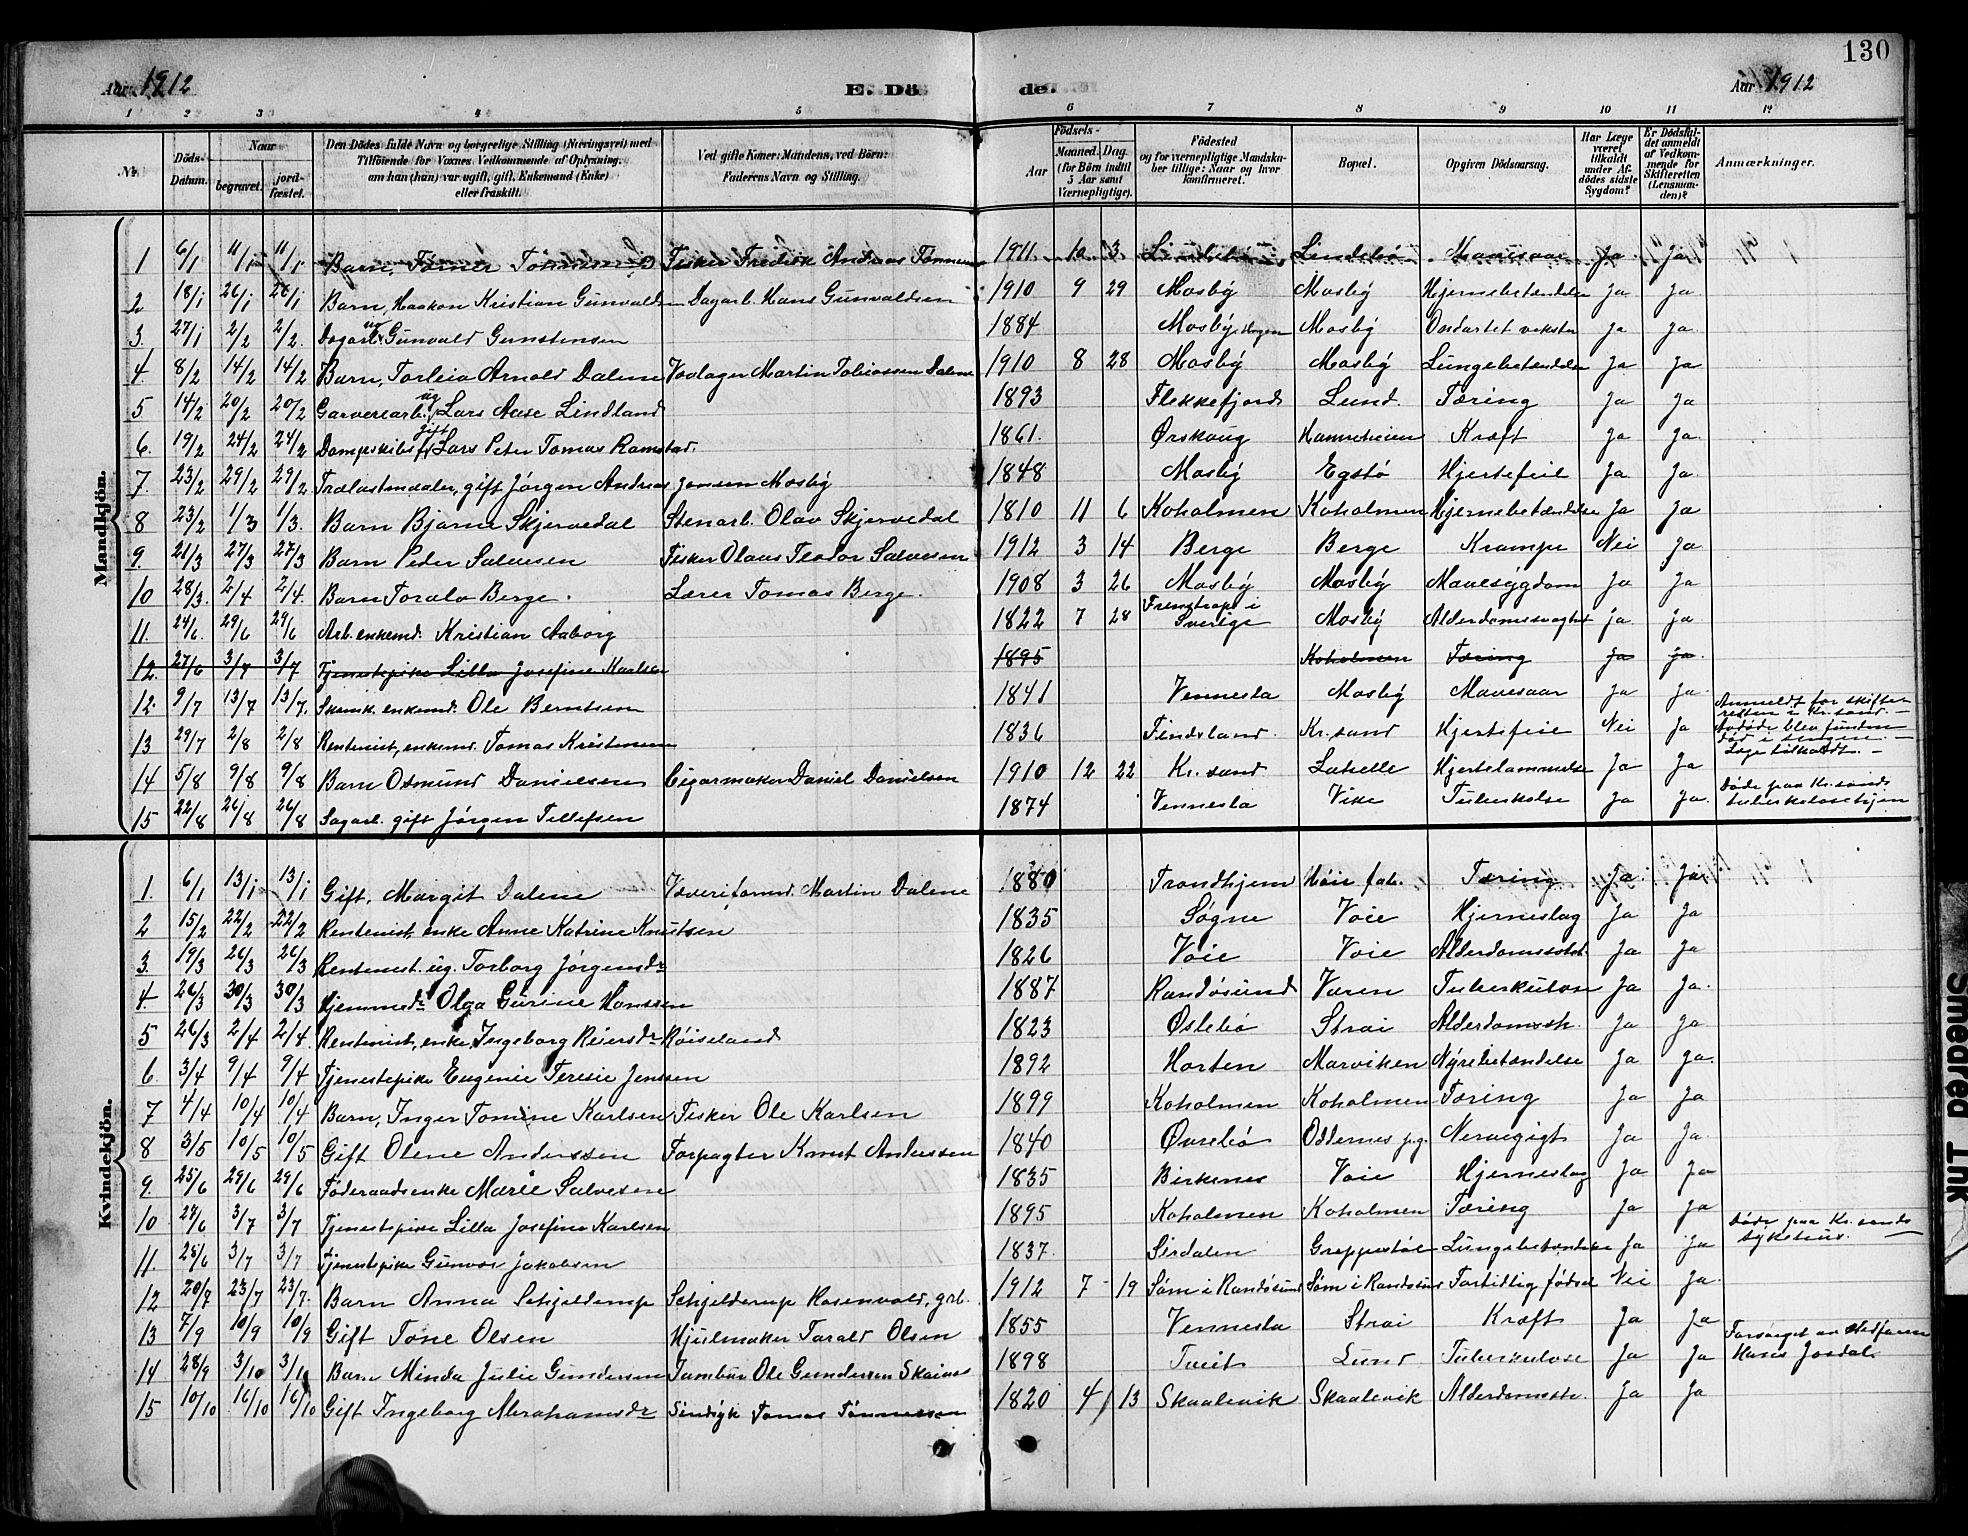 130
Aar 1912 E. Dö de. Aar 1912
1 2 3 4 5 6 7 8 9 10 11 12
Nr. Döds-Datum. Naar begravet. jordfæstet. Den Dödes fulde Navn og borgerlige Stilling (Næringsvei) med Tilföiende for Voxnes Vedkommende af Oplysning, om han (hun) var ugift, gift, Enkemand (Enke) eller fraskilt. Ved gifte Koner: Mandens, ved Børn: Faderens Navn og Stilling. Födsels- Aar Maaned. Dag. (for Börn indtil 5 Aar samt Værnepligtige). Födested og for værnepligtige Mandskaber tillige: Naar og hvor konfirmeret. Bopæl. Opgiven Dödsaarsag. Har Læge været tilkaldt under Afdödes sidste Sygdom? Er Dödsfaldet anmeldt af Vedkommende for Skifteretten (Lensmanden)? Anmærkninger.
Mandkjön.
1 6/1 11/1 11/1 Barn, Tørner Tønnesen Fisker Fredrik Andreas Tønnesen 1911 3 Lindebø Lindebø Mavesaar Ja Ja
2 18/1 26/1 26/1 Barn, Haakon Kristian Gunvaldsen Dagarb. Hans Gunvaldsen 1910 9 29 Mosby Mosby Hjernebetændelse Ja Ja
3. 27/1 2/2 2/2. Dagarb. ug Gunvald Gunstensen 1884 Mosby Mosby Ondartet vekster Ja Ja.
4. 8/2 14/2 14/2 Barn, Torleiv Arnold Dalene Martin Tobiassen Dalene 1910 8 28 Mosby Mosby Lungebetændelse Ja Ja
5 14/2 20/2 20/2 Garveriarb. ug Lars Aase Lindland 1893 Flekkefjord Lund. Tæring Ja Ja
6. 19/2 24/2 24/2 gift Lars Peter Tomas Ramstad. 1861. Ørskaug Hanneheien Kræft Ja Ja.
7. 23/2 29/2 29/2 Trælasthandler, gift Jørgen Andreas Jensen Mosby 1848 Mosby Egstø Hjertefeil Ja Ja.
8 23/2 1/3 1/3. Barn Bjarne Skjervedal Stenarb. Olav Skjervedal 1810 11 6 Koholmen Koholmen Hjernebetændelse Ja Ja
9. 21/3 27/3 27/3 Barn Peder Salvesen Fisker Olaus Teodor Salvesen 1912 3 14 Berge Berge Krampe Nei Ja
10 28/3. 2/4 2/4. Barn Toralv Berge. Lærer Tomas Berge. 1908 3 26 Mosby Mosby Mavesygdom Ja Ja
11. 24/6. 29/6 29/6 Arb. enkemd. Kristian Aaborg 1822 7 28 i Sverige Mosby Alderdomssvaghet Ja Ja
12. 27/6 3/7 3/7 Tjenestepike Lilla Josefine Karlsen 1895 Koholmen Tæring Ja Ja.
12. 9/7 13/7 13/7. enkemd. Ole Berntsen 1841 Vennesla Mosby Mavesaar Ja Ja. Anmeldt for skifteretten i Kr.sand. -
13 29/7 2/8 2/8 Rentenist, enkemd. Tomas Kristensen 1836 Findsland. Kr.sand Hjertefeil Nei Ja Avdøde blev funden død i sengen. - Læge tilkaldt. -
14 5/8 9/8 9/8 Barn Osmund Danielsen Cigarmaker Daniel Danielsen 1910 12 22 Kr.sand Lahelle Hjertelammelse Ja Ja
15 22/8 26/8 26/8 Sagarb. gift Jørgen Tellefsen 1874 Vennesla Vike Tuberkulose Ja Ja. Døde paa Kr.sands tuberkulosehjem
Kvindekjön.
1. 6/1 13/1 13/1 Gift, Margit Dalene Martin Dalene 1880 Trondhjem Høie fab. Tæring Ja. Ja.
2 15/2 22/2 22/2 Rentenist, enke Anne Katrine Knutsen 1835 Søgne Voie Hjerneslag Ja Ja
3. 19/3 26/3 26/3 Rentenist. ug. Torborg Jørgensdr 1826 Voie Voie Ja Ja
4. 26/3 30/3 30/3 Hjemmedr Olga Gurine Hanssen 1887 Randøsund Varen Tuberkulose Ja Ja.
5 26/3 2/4 2/4. Rentenist, enke, Ingeborg Reiersdr Røiseland 1823 Øslebø Strai Alderdomssk. Ja Ja
6. 3/4 9/4 9/4 Tjenestepike Eugenie Teresie Jenssen 1892 Horten Marviken Nyrebetændelse Ja Ja.
7 4/4 10/4 10/4 Barn, Inger Tomine Karlsen Fisker Ole Karlsen 1899 Koholmen Koholmen Tæring Ja Ja
8 3/5 10/5 10/5 Gift Olene Anderssen Forpagter Knut Anderssen 1840 Øvrebø Oddernes pg. Nervegigt Ja Ja.
9. 25/6 29/6 29/6 Føderaadsenke Marie Salvesen 1835 Birkenes Voie Hjerneslag Ja Ja
10 27/6 3/7 3/7 Tjenestepike Lilla Josefine Karlsen 1895 Koholmen Koholmen Tæring Ja Ja
11. 25/6 3/7 3/7 Tjenestepike Gunvor Jakobsen 1837. Sirdalen Greppestøl Lungebetændelse Ja Ja Døde paa Kr.sands sykehus. -
12 20/7 23/7 23/7. Barn Anna Schjelderup Schjelderup Rosenvold, grb. 1912 7 19 Søm i Randøsund Søm i Randøsund Fortidlig fødsel Nei Ja.
13 7/9 10/9 10/9 Gift Tone Olsen Hjulmaker Tarald Olsen 1855 Vennesla Strai Kræft Ja Ja
14 28/9 3/10 3/10 Barn Minda Julie Gundersen Tambur Ole Gundersen 1898 Tveit Lund Tuberkulose Ja Ja Forsørget av stedfaren Hans Josdal.
15 10/10 16/10 16/10 Gift Ingeborg Abrahamsdr Tomas Tønnessen 1820 4 13 Skaalevik Skaalevik Alderdomssk. Ja Ja
Smeared Ink